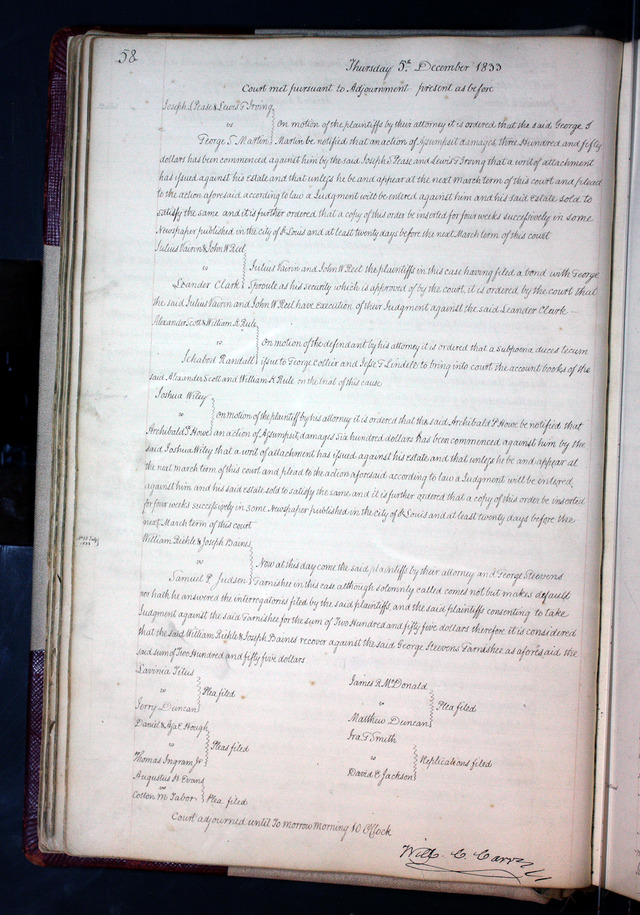 58
Thursday 5th December 1833
Court met pursuant to Adjournment present as before
Joseph S Pease & Lewis T Irving
vs
George T Martin
On motion of the plaintiffs by their attorney it is ordered that the said George T
Martin be notified that an action of Assumpsit damages three Hundred and fifty
dollars has been commenced against him by the said Joseph S Pease and Lewis T Irving that a writ of attachment
has issued against his Estate and that unless he be and appear at the next March term of this court and plead
to the action aforesaid according to law a Judgment will be entered against him and his said estate sold to
satisfy the same and it is further ordered that a copy of this order be inserted for four weeks successively in some
Newspaper published in the city of St Louis and at least twenty days before the next March term of this court
Julius Vairin & John W Reel
vs
Leander Clark
Julius Vairin and John W Reel the plaintiffs in this case having filed a bond with George
Sproule as his security which is approved of by the court, it is ordered by the court that
the said Julius Vairin and John W Reel have execution of their Judgment against the said Leander Clark —
Alexander Scott & William K Rule
vs
Ichabod Randall
On motion of the defendant by his attorney it is ordered that a subpoena duces tecum
issue to George Collier and Jesse G Lindell to bring into court the account books of the
said Alexander Scott and William K Rule on the trial of this cause
Joshua Wiley
vs
Archibald P Howe
On motion of the plaintiff by his attorney it is ordered that the said Archibald P Howe be notified that
an action of Assumpsit, damages Six hundred dollars has been commenced against him by the
said Joshua Wiley that a writ of attachment has issued against his estate and that unless he be and appear at
the next march term of this court and plead to the action aforesaid according to law a Judgment will be entered
against him and his said estate sold to satisfy the same and it is further ordered that a copy of this order be inserted
for four weeks successively in some Newspaper published in the city of St Louis and at least twenty days before the
next March term of this court
William Riehle & Joseph Baines
vs
Samuel P Judson
Now at this day come the said plaintiffs by their attorney and George Steevens
Garnishee in this case although solemnly called comes not but makes default
nor hath he answered the interrogatories filed by the said plaintiffs, and the said plaintiffs consenting to take
Judgment against the said Garnishee for the sum of Two Hundred and fifty five dollars therefore it is considered
that the said William Riehle & Joseph Baines recover against the said George Steevens Garnishee as aforesaid the
said sum of Two Hundred and fifty five dollars
Lavinia Titus
vs
Jerry Duncan
Plea filed
James R McDonald
vs
Matthew Duncan
Plea filed
Daniel & Asa E Hough
vs
Thomas Ingram Jr
Pleas filed
Ira T Smith
vs
David E Jackson
Replications filed
Augustus H Evans
vs
Cotton M Tabor
Plea filed
Court adjourned until Tomorrow morning 10 O'Clock
Will. C. Carr